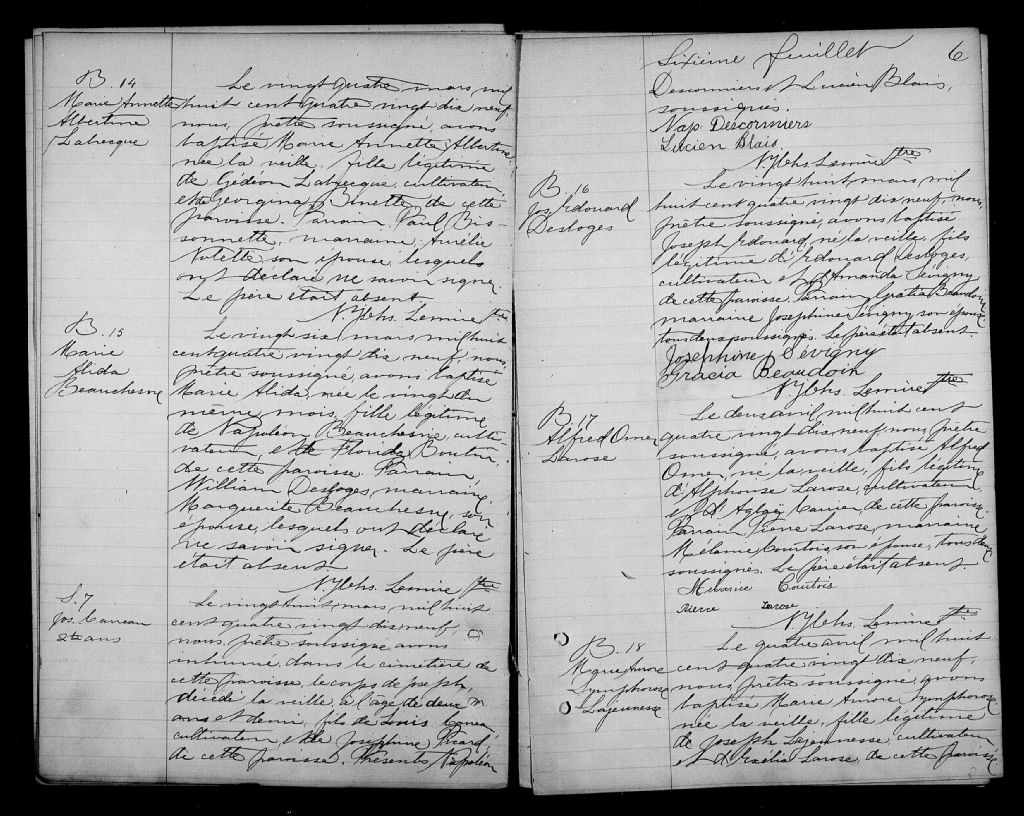 B. 14
Marie Annette
Albertine
Labrecque
Le vingt quatre mars, mil
huit cent quatre vingt dix neuf,
nous, prêtre soussigné, avons
baptisé Marie Annette Albertine
née la veille, fille légitime
de Gédéon Labrecque, cultivateur,
et de Georgina Binette, de cette
paroisse. Parrain, Paul Bis-
sonnette, marraine, Aurélie
Nolette son épouse, lesquels
ont déclaré ne savoir signer.
Le père était absent.
Lemire Ptre
B. 15
Marie
Alida
Beauchesne
Le vingt six mars, mil huit
cent quatre vingt dix neuf, nous,
prêtre soussigné, avons baptisé
Marie Alida, née le vingt du
même mois, fille légitime
de Napoléon Beauchesne, culti-
vateur, et de Florida Boutin,
de cette paroisse. Parrain,
William Desloges, marraine,
Marguerite Beauchesne, son
épouse, lesquels ont déclaré
ne savoir signer. Le père
était absent.
Lemire Ptre
S. 7
Jos. Carreau
2½ ans
Le vingt huit, mars, mil huit
cent quatre vingt dix neuf,
nous, prêtre soussigné, avons
inhumé, dans le cimetière de
cette paroisse, le corps de Joseph,
décédé la veille, à l'âge de deux
ans et demi, fils de Louis Carreau
cultivateur, et de Joséphine Picard,
de cette paroisse. Présents, Napoléon
Sixième feuillet 6
Descormiers et Lucien Blais,
soussignés.
Nap. Descormiers
Lucien Blais.
Lemire Ptre
B. 16
Jos Edouard
Desloges
Le vingt huit, mars, mil
huit cent quatre vingt dix neuf, nous,
prêtre soussigné, avons baptisé
Joseph Edouard, né la veille, fils
légitime d'Edouard Desloges,
cultivateur et d'Amanda Sévigny
de cette paroisse. Parrain, Gratia Beaudoin
marraine Josephine Sévigny, son épouse
tous deux soussignés. Le père était absent.
Josephine Sevigny
Gracia Beaudoin
Lemire Ptre
B. 17
Alfred Omer
Larose
Le deux avril, mil huit cent
quatre vingt dix neuf, nous, prêtre
soussigné, avons baptisé Alfred
Omer, né la veille, fils légitime
d'Alphonse Larose, cultivateur
et d'Aglaé Carrier, de cette paroisse.
Parrain, Pierre Larose, marraine
Mélanie Courtois, son épouse, tous deux
soussignés. Le père était absent.
Melanie Courtois
Pierre Larose
Lemire Ptre
B. 18
Aurore
Symphorose
Lajeunesse
Le quatre avril, mil huit
cent quatre vingt dix neuf,
nous, prêtre soussigné, avons
baptisé Marie Aurore Symphorose
née la veille, fille légitime
de Joseph Lajeunesse, cultivateur
et d'Exélia Larose, de cette paroisse.